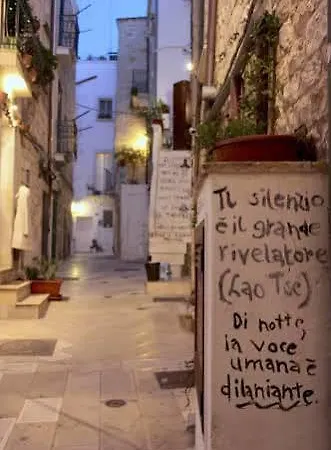 Il silenzio
è il grande
rivelatore
(Lao Tse)
Di notte,
la voce
umana è
dilaniante.